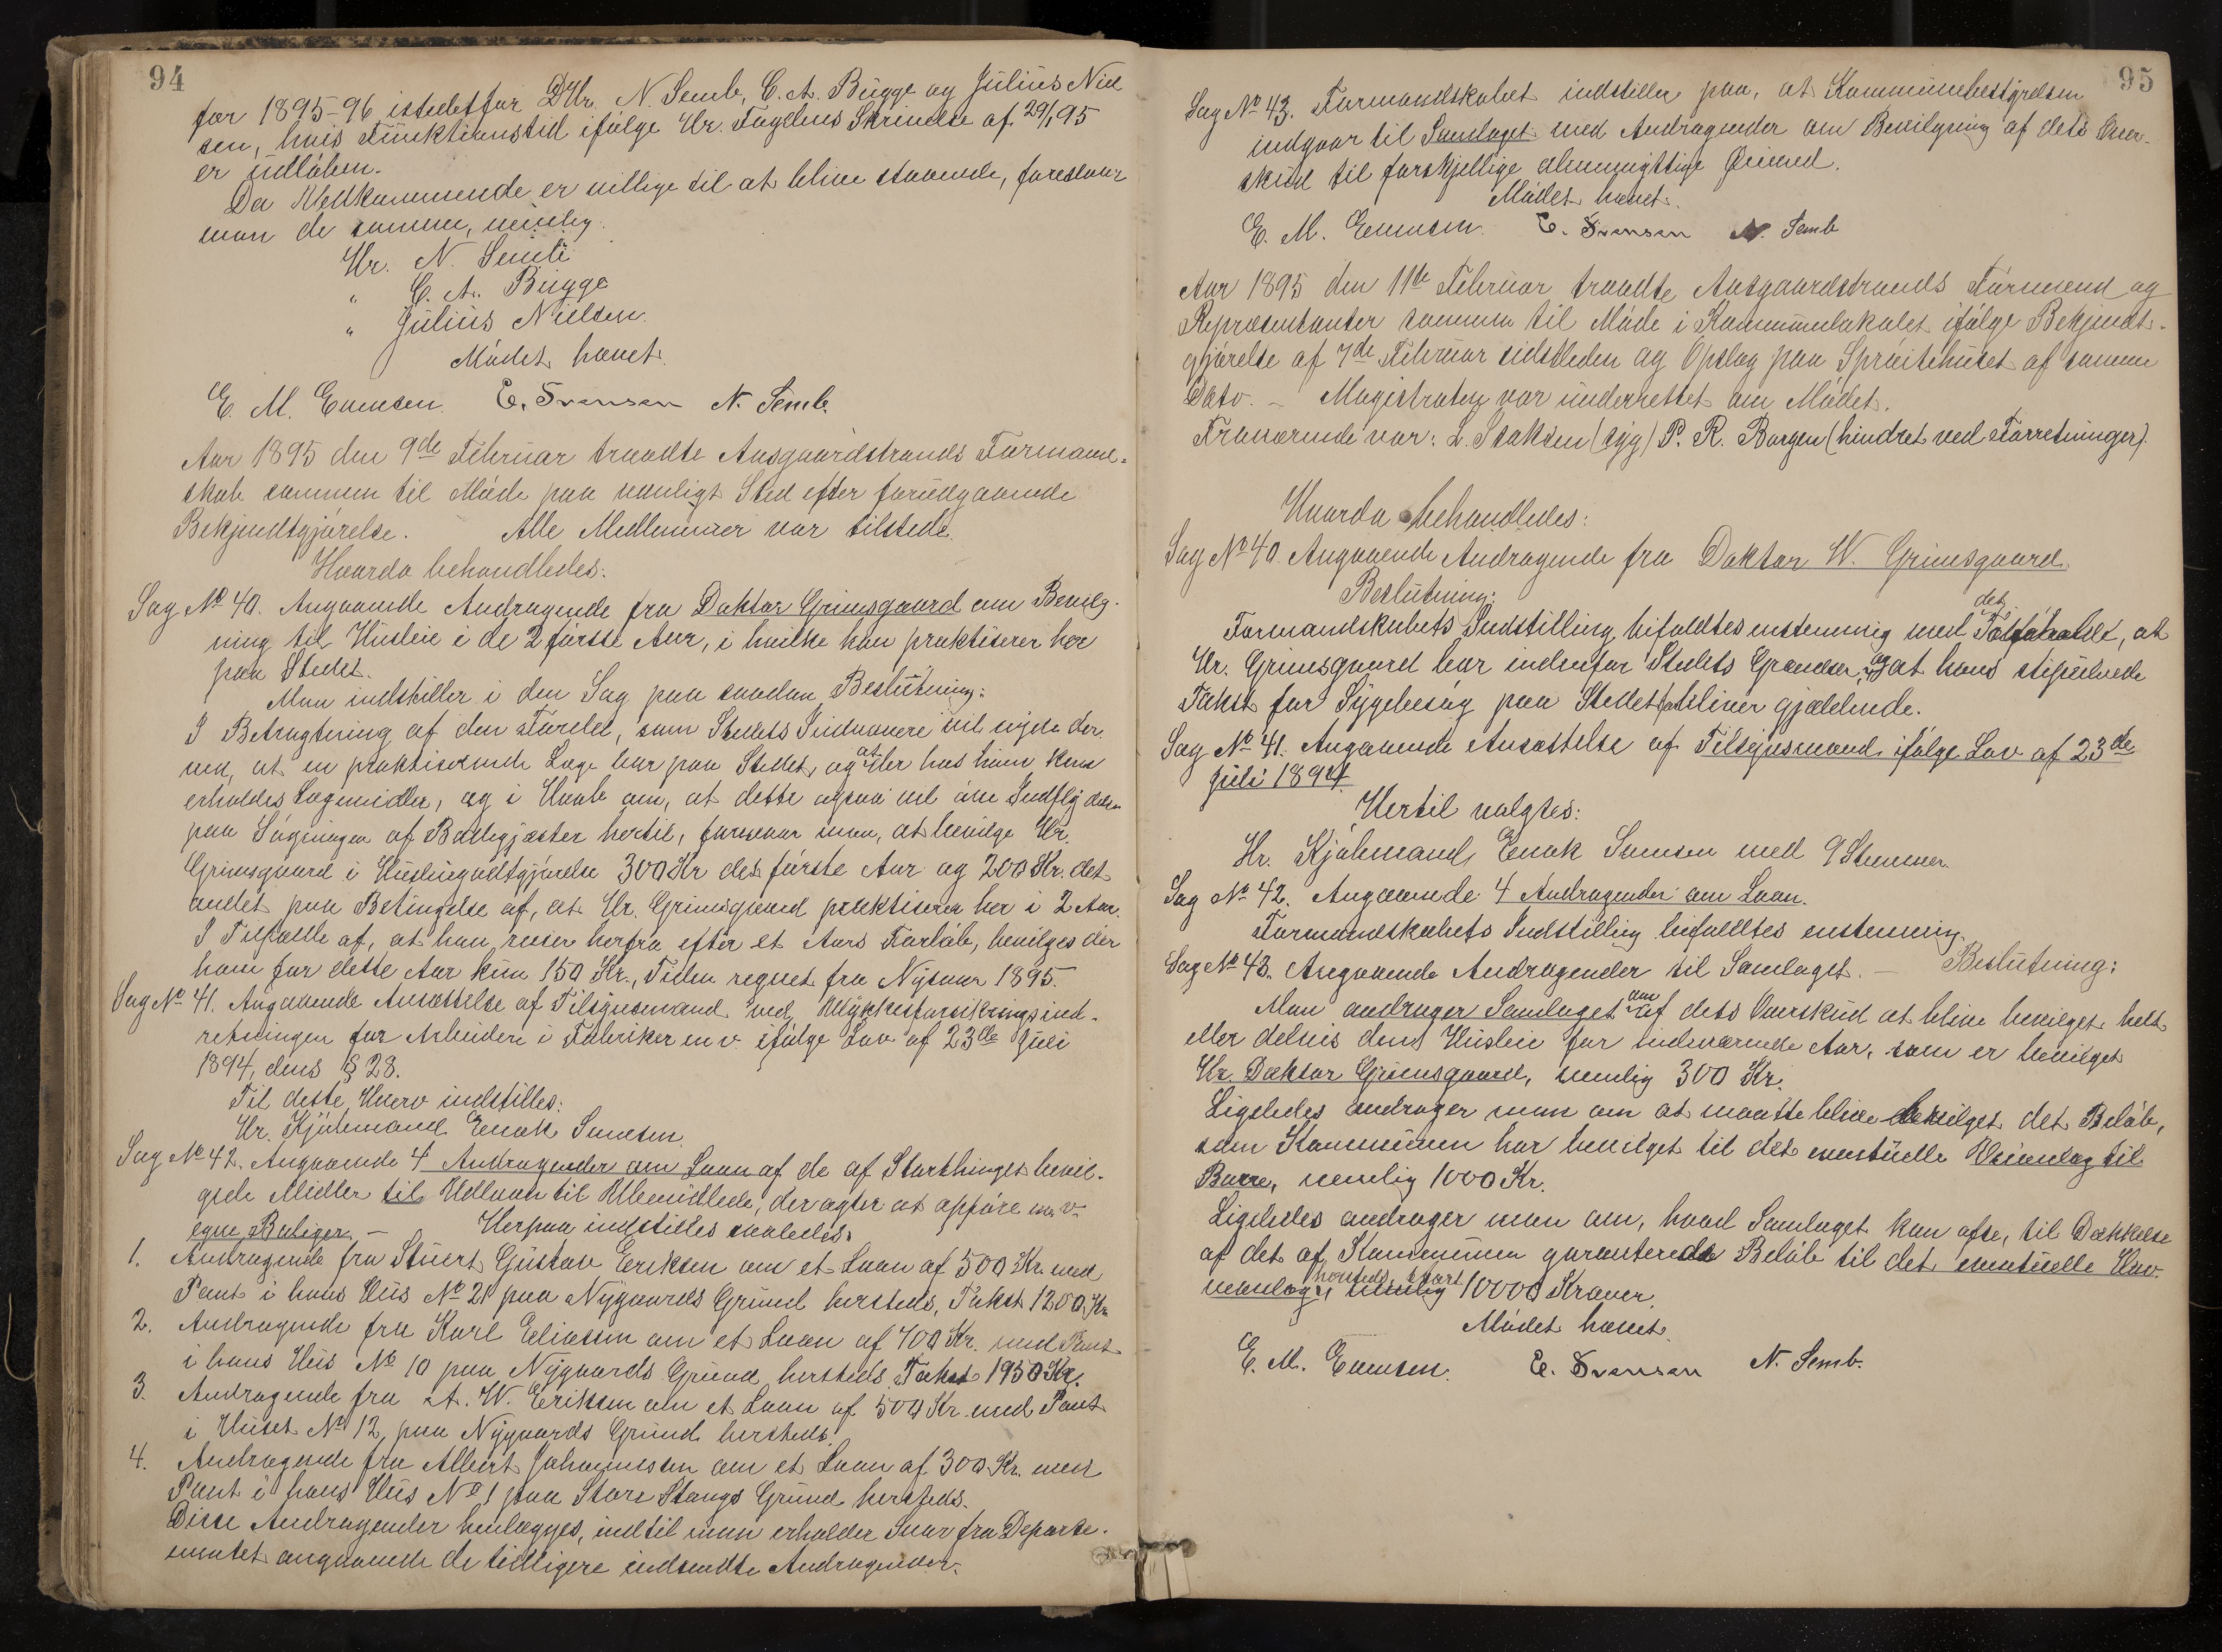 94
for 1895-96 istedetfor DHr. N. Semb, C. A. Bugge og Julius Niel
sen, hvis Funktionstid ifølge Hr. Fogdens Skrivelse af 29/1 95
er udløben.
Da Vedkommende er villige til at blive staaende, foreslaar
man de samme, nemlig:
Hr. N. Semb
" C. A. Bugge
" Julius Nielsen.
Mødet hævet.
E. M. Evensen. E. Svensen N. Semb.
Aar 1895 den 9de Februar traadte Aasgaardstrands Formand-
skab sammen til Møde paa vanligt Sted efter forudgaaende
Bekjendtgjørelse. Alle Medlemmer var tilstede.
Hvorda behandledes:
Sag No 40. Angaaende Andragende fra Doktor Grimsgaard om Bevilg-
ning til Husleie i de 2 første Aar, i hvilke han praktiserer her
paa Stedet.
Man indstiller i den Sag paa saadan Beslutning:
I Betragtning af den Fordel, som Stedets Indvaanere vil nyde der-
ved, at en praktiserende Læge bor paa Stedet, og at der hos ham kan
erholdes Lægemidler, og i Haab om, at dette ogsaa vil øve Indflydelse
paa Søgningen af Badegjæster hertil, formener man, at bevilge Hr.
Grimsgaard i Huslejegodtgjørelse 300 Kr det første Aar og 200 Kr. det
andet paa Betingelse af, at Hr. Grimsgaard praktiserer her i 2 Aar.
I Tilfælde af, at han reiser herfra efter et Aars Forløb, bevilges der
ham for dette Aar kun 150 Kr., Tiden regnet fra Nytaar 1895.
Sag No 41. Angaaende Ansættelse af Tilsynsmand ved Ulykkesforsikringsind-
retningen for Arbeidere i Fabriker m v. ifølge Lov af 23de Juli
1894, dens § 28.
Til dette Hverv indstilles:
Hr. Kjøbmand Enok Samsen.
Sag No 42. Angaaende 4 Andragender om Laan af de af Storthinget bevil-
gede Midler til Udlaan til Ubemidlede, der agter at opføre m. v.
egne Boliger. - Herpaa indstilles saaledes:
1. Andragende fra Stuert Gustav Eriksen om et Laan af 500 Kr. med
Pant i hans Hus No 21 paa Nygaards Grund hersteds, Takst 1200 Kr
2. Andragende fra Karl Eliassen om et Laan af 400 Kr. med Pant
i hans Hus No 10 paa Nygaards Grund hersteds Takst 1950 Kr.
3. Andragende fra A. W. Eriksen om et Laan af 500 Kr. med Pant
i Huset No 12 paa Nygaards Grund hersteds.
4. Andragende fra Albert Johannessen om et Laan af 300 Kr. med
Pant i hans Hus No 1 paa Store Stangs Grund hersteds.
Disse Andragender henlægges, indtil man erholder Svar fra Departe-
mentet angaaende de tidligere indsendte Andragender.
95
Sag No 43. Formandskabet indstiller paa, at Kommunebestyrelsen
indgaar til Samlaget med Andragender om Bevilgning af dets Over-
skud til forskjellige almennyttige Øiemed.
Mødet hævet.
E. M. Evensen. E. Svensen N. Semb
Aar 1895 den 11te Februar traadte Aasgaardstrands Formænd og
Repræsentanter sammen til Møde i Kommunelokalet ifølge Bekjendt-
gjørelse af 7de Februar sidstleden og Opslag paa Sprøitehuset af samme
Dato. - Magistraten var underrettet om Mødet.
Fraværende var: L. Staksen (syg) P. R. Borgen (hindret ved Forretninger).
Hvorda behandledes:
Sag No 40. Angaaende Andragende fra Doktor W. Grimsgaard.
Beslutning:
Formandskabets Indstilling bifaldtes enstemmig med det Forbehold, at
Hr. Grimsgaard bor indenfor Stedets Grændser, og at hans stipulerede
Takst for Sygebesøg paa Stedet bliver gjældende.
Sag No 41. Angaaende Ansættelse af Tilsynsmand ifølge Lov af 23de
Juli 1894
Hertil valgtes:
Hr. Kjøbmand Enok Samsen med 9 Stemmer.
Sag No 42. Angaaende 4 Andragender om Laan.
Formandskabets Indstilling bifaldtes enstemmig.
Sag No 43. Angaaende Andragender til Samlaget. - Beslutning:
Man andrager Samlaget om af dets Overskud at blive bevilget helt
eller delvis den Husleie for indeværende Aar, som er bevilget
Hr. Doktor Grimsgaard, nemlig 300 Kr.
Ligeledes andrager man om at maatte blive bevilget det Beløb,
som Kommunen har bevilget til det eventuelle Veianlæg til
Borre, nemlig 1000 Kr.
Ligeledes andrager man om, hvad Samlaget kan afse, til Dækkelse
af det af Kommunen garanterede Beløb til det eventuelle Hav-
neanlæg hersteds, stort 10000 Kroner.
Mødet hævet.
E. M. Evensen. E. Svensen N. Semb.